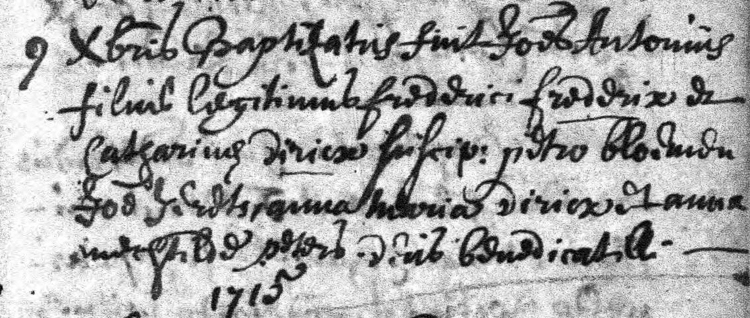 9 Xbris Baptizatus fuit Joēs Antonius
filius legitimus frederici frederix et
Catharinae diricx suscip: petro bloemen
Joē gerets, anna maria diricx et anna
mechtilde peters. dn̄s benedicat illi.
1715